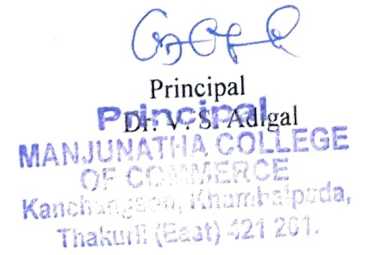 Principal
Dr. V. S. Adigal
Principal
MANJUNATHA COLLEGE
OF COMMERCE
Kanchangaon, Khambalpada,
Thakurli (East) 421 201.